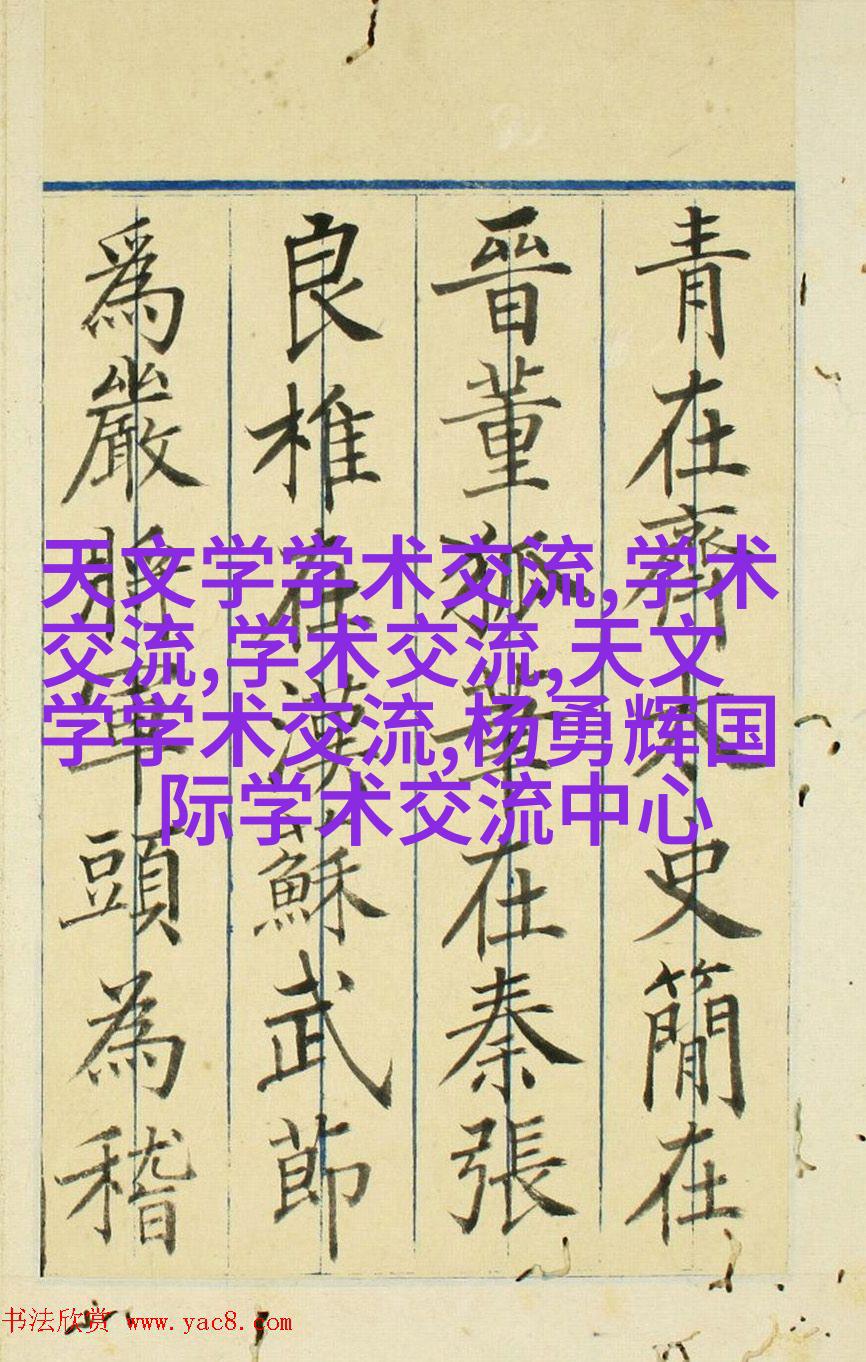 青在齊太史簡在
晉董狐筆在秦張
良椎在漢蘇武節
爲嚴將軍頭為稽
天文学学术交流,学术
交流,学术交流,天文
学学术交流,杨勇辉国
际学术交流中心
书法欣赏 www.yac8.com